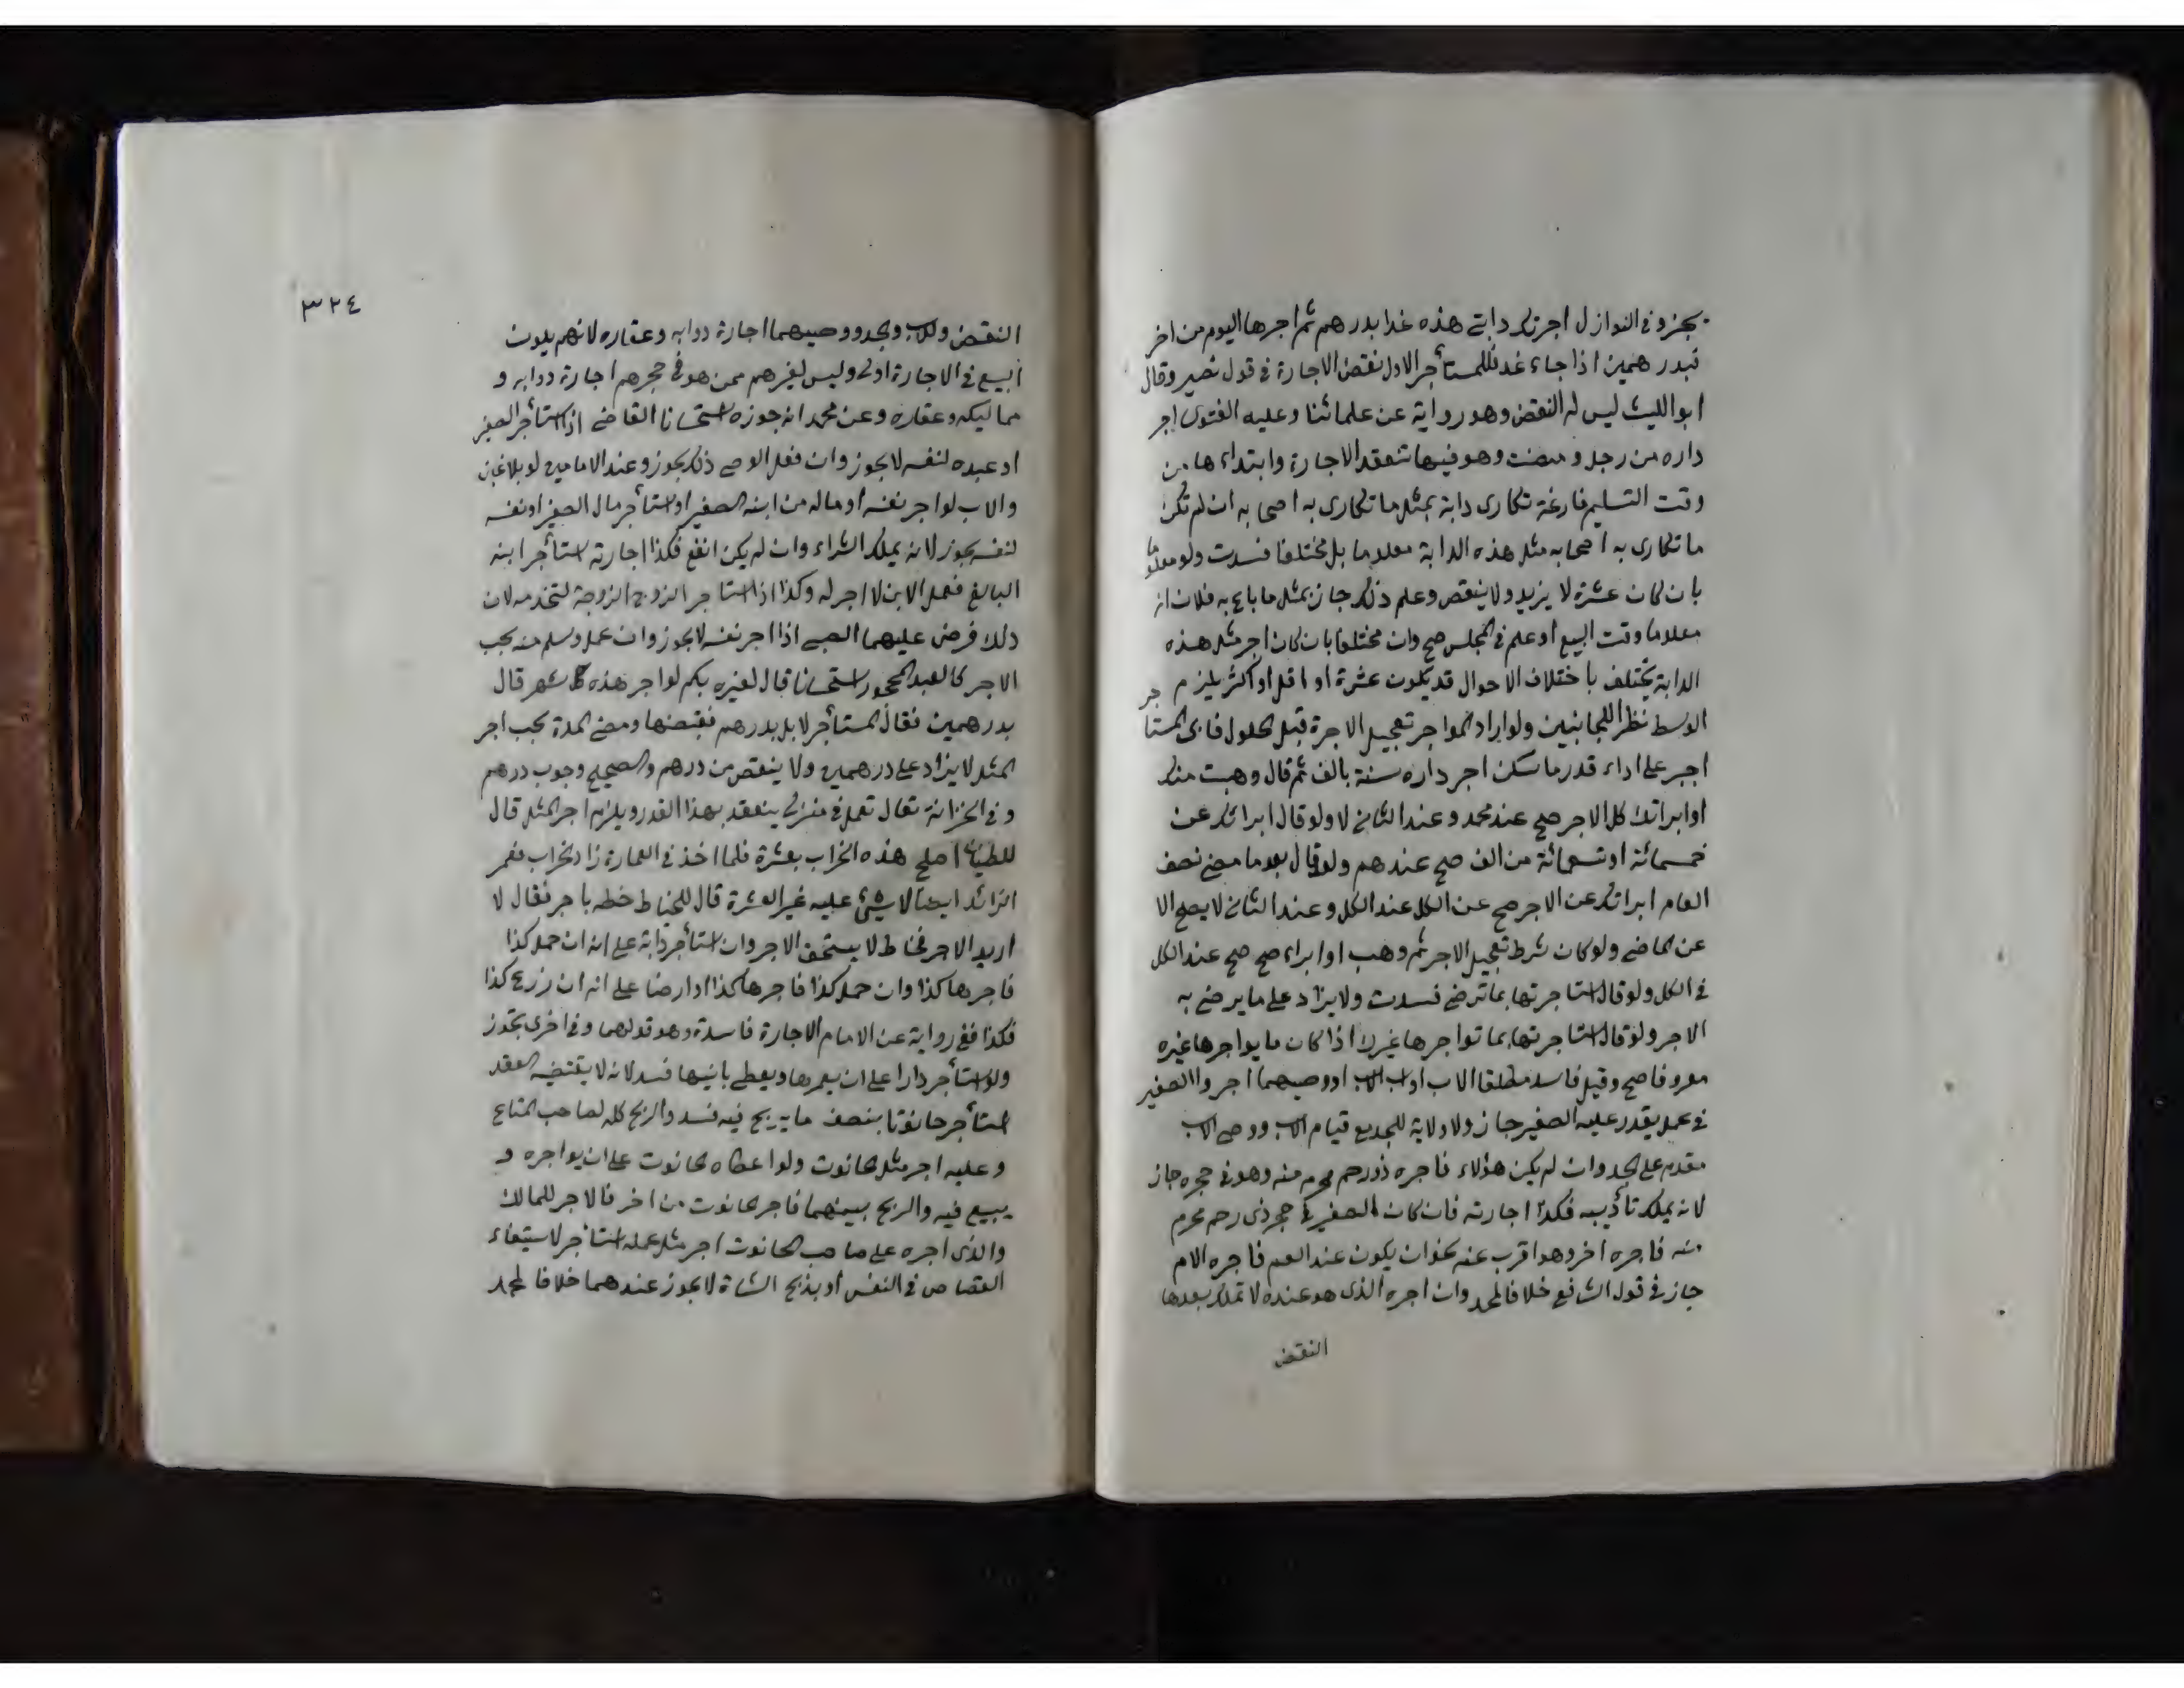 يجز وفي النوازل اجرتك دابتي هذه غدا بدرهم ثم اجرها اليوم من اخر
بدرهمين اذا جاء غد فللمستأجر الاول نقض الاجارة في قول نصير وقال
ابو الليث ليس له النقض وهو رواية عن علمائنا وعليه الفتوى اجر
داره من رجل ومضت وهو فيها تنعقد الاجارة وابتداءها من
وقت التسليم فارغة تكارى دابة بمثل ما تكارى به اصحابه ان لم تكن
ما تكارى به اصحابه مثل هذه الدابة معلوما بل مختلفا فسدت ولو معلوما
بان كان عشرة لا يزيد ولا ينقص وعلم ذلك جاز بمثل ما باع به فلان انه
معلوما وقت البيع او علم في المجلس صح وان مختلفا بان كان اجر مثل هذه
الدابة يختلف باختلاف الاحوال قد يكون عشرة او اقل او اكثر يلزم
الوسط نظرا للجانبين ولو اراد المواجر تعجيل الاجرة قبل الحلول فابى المستاجر
اجبر على اداء قدر ما سكن اجر داره سنة بالف ثم قال وهبت منك
او ابرأتك كل الاجر صح عند محمد وعند الثاني لا ولو قال ابرأتك عن
خمسمائة او تسعمائة من الف صح عندهم ولو قال بعد ما مضى نصف
العام ابرأتك عن الاجر صح عن الكل عند الكل وعند الثاني لا يصح الا
عن الماضي ولو كان شرط تعجيل الاجر ثم وهب او ابراء صح صح عند الكل
في الكل ولو قال استاجرتها بما ترضى فسدت ولا يزاد على ما يرضى به
الاجر ولو قال استاجرتها بما تواجرها غيرك اذا كان ما يواجرها غيره
معروفا صح وقيل فاسد مطلقا الاب او اب الاب او وصيهما اجروا الصغير
في عمل يقدر عليه الصغير جاز ولا ولاية للجد مع قيام الاب ووصى الاب
مقدم على الجد وان لم يكن هؤلاء فاجره ذو رحم محرم منه وهو في حجره جاز
لانه يملك تأديبه فكذا اجارته فان كان الصغير في حجر ذى رحم محرم
منه فاجره اخر وهو اقرب عنه نحو ان يكون عند العم فاجره الام
جاز في قول الثاني خلافا لمحمد وان اجره الذى هو عنده لا تملك بعدها
النقض
٣٢٤
النقض وللاب والجد ووصيهما اجارة دوابه وعقاره لانهم يلون
البيع في الاجارة اولى وليس لغيرهم ممن هو في حجرهم اجارة دوابه و
مماليكه وعقاره وعن محمد انه جوزه استحسانا القاضي اذا استأجر الصغير
او عبده لنفسه لا يجوز وان فعل الوصي ذلك يجوز وعند الامامين لو بلا غبن
والاب لو اجر نفسه او ماله من ابنه الصغير او استأجر مال الصغير او نفسه
لنفسه يجوز لانه يملك الشراء وان لم يكن انفع فكذا اجارته استأجر ابنه
البالغ فعمل الابن لا اجر له وكذا اذا استاجر الزوج الزوجة لتخدمه لان
ذلك فرض عليهما الصبي اذا اجر نفسه لا يجوز وان عمل وسلم منه يجب
الاجر كالعبد المحجور استحسانا قال لغيره بكم لو اجر هذه كل شهر قال
بدرهمين فقال المستأجر لا بل بدرهم فقبضها ومضى المدة يجب اجر
المثل لا يزاد على درهمين ولا ينقص من درهم والصحيح وجوب درهم
وفي الخزانة تعال تعمل في منزلي ينعقد بهذا القدر ويلزم اجر المثل قال
للطيان اصلح هذه الخراب بعشرة فلما اخذ في العمارة زاد الخراب فعمر
الزائد ايضا لا شئ عليه غير العشرة قال للخياط خطه باجر فقال لا
اريد الاجر فخاط لا يستحق الاجر وان استأجر دابة على انه ان حمل كذا
فاجرها كذا وان حمل كذا فاجرها كذا او ارضا على انه ان زرع كذا
فكذا ففي رواية عن الامام الاجارة فاسدة وهو قولهما وفي اخرى يجوز
ولو استأجر دارا على ان يعمرها ويعطي بانيها فسد لانه لا يقتضيه العقد
استأجر حانوتا بنصف ما يربح فيه فسد والربح كله لصاحب المتاع
وعليه اجر مثل الحانوت ولو اعطاه الحانوت على ان يواجره و
يبيع فيه والربح بينهما فاجر الحانوت من اخر فالاجر للمالك
والذى اجره على صاحب الحانوت اجر مثل عمله استاجر لاستيفاء
القصاص في النفس او بذبح الشاة لا يجوز عندهما خلافا لمحمد